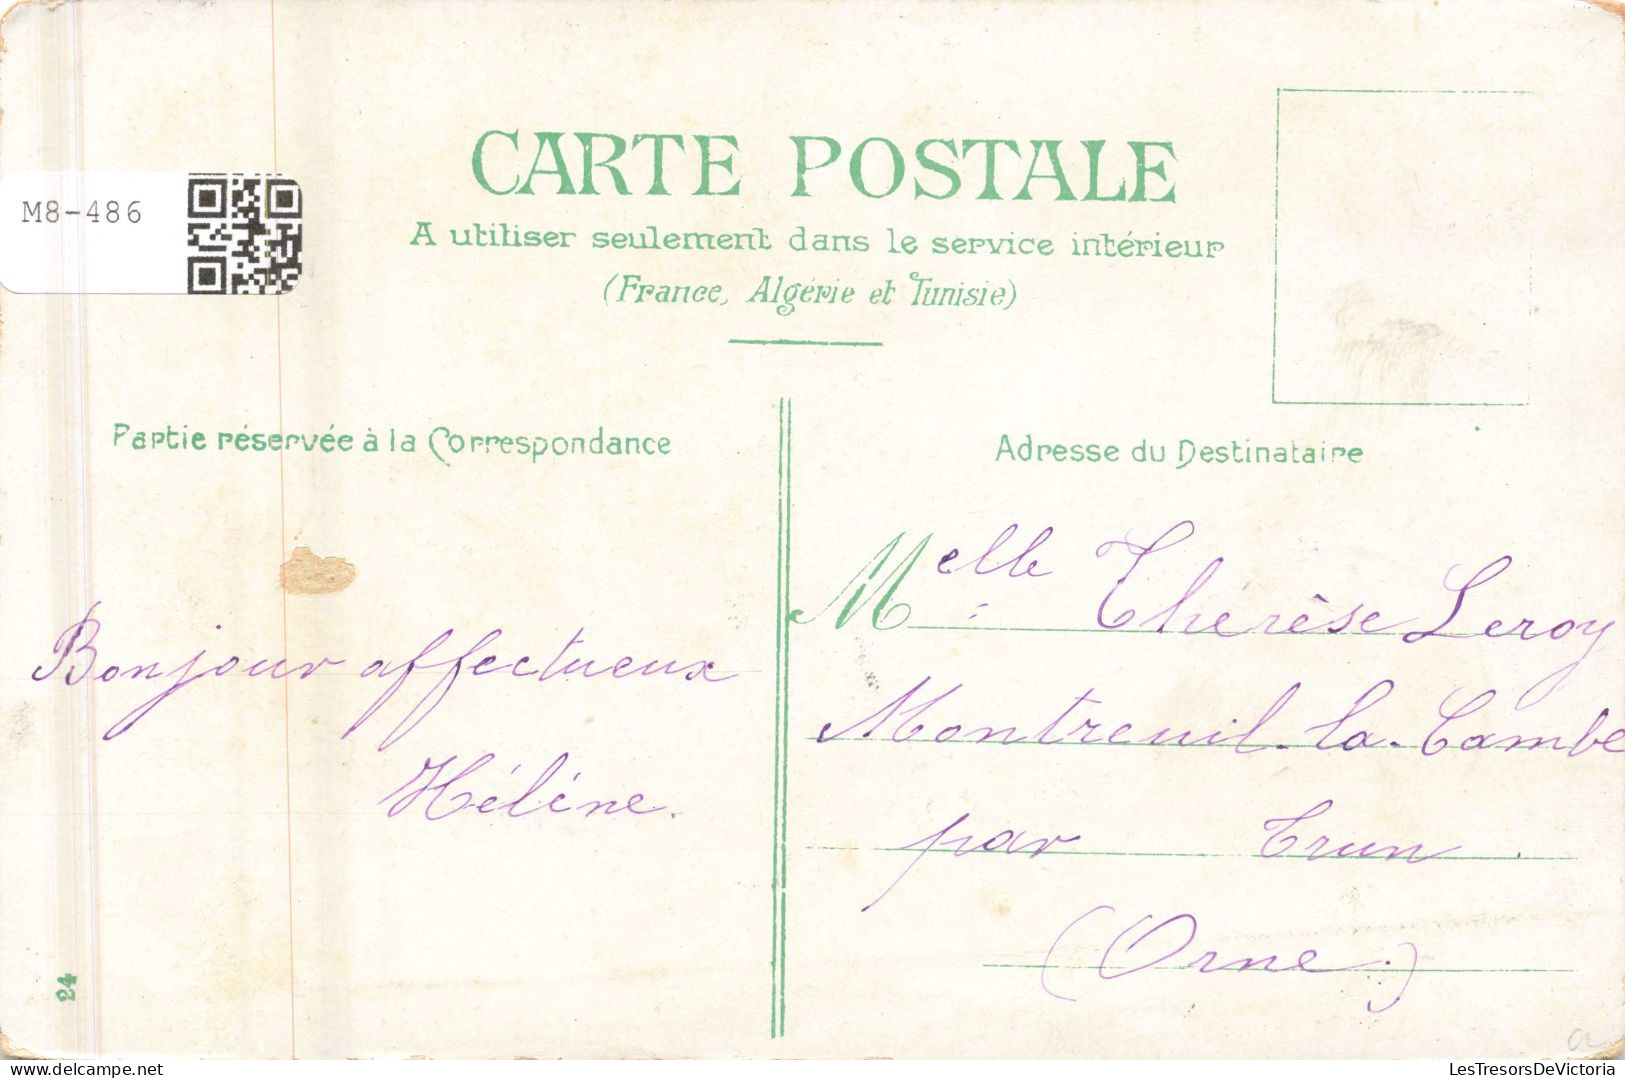 CARTE POSTALE
A utiliser seulement dans le service intérieur
(France, Algérie et Tunisie)
M8-486
Partie réservée à la Correspondance
Bonjour affectueux
Hélène.
24
Adresse du Destinataire
Melle Thérèse Leroy
Montreuil-la-Cambe
par Trun
(Orne.)
a
LesTresorsDeVictoria